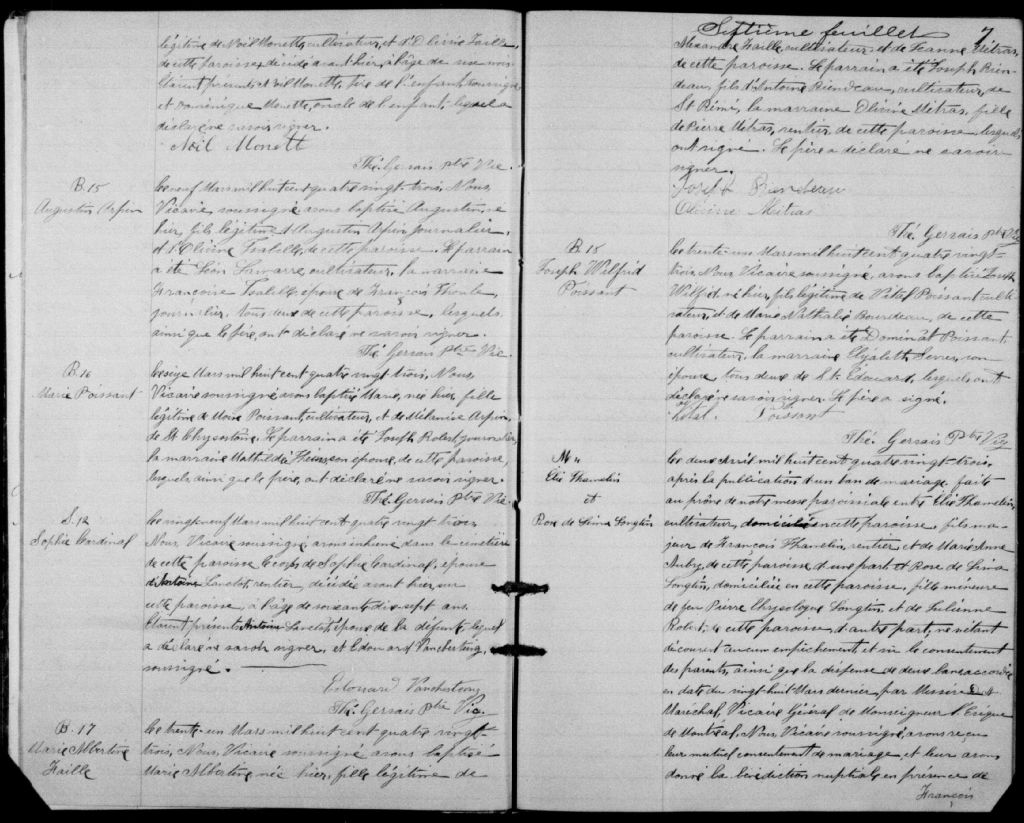 légitime de Noël Monette, cultivateur, et d'Olivine Faille,
de cette paroisse, décédé avant hier, à l'âge de six mois
Etaient présents Noël Monette, père de l'enfant, soussigné
et Dominique Monette, oncle de l'enfant, lequel a
déclaré ne savoir signer.
Noël Monett
Thé. Gervais ptre Vic.
B. 15
Augustin Arpin
Le neuf Mars mil huit cent quatre vingt trois, Nous,
Vicaire, soussigné avons baptisé Augustin, né
hier, fils légitime d'Augustin Arpin, journalier,
et d'Olivine Isabelle, de cette paroisse. Le parrain
a été Léon Lamarre, cultivateur, la marraine
Françoise Isabelle, épouse de François
journalier, tous deux de cette paroisse, lesquels
ainsi que le père, ont déclaré ne savoir signer.
Thé. Gervais ptre Vic.
B. 16
Marie Poissant
Le seize Mars mil huit cent quatre vingt trois, Nous,
Vicaire soussigné avons baptisé Marie, née hier, fille
légitime de Moïse Poissant, cultivateur, et de Mélanise Arpin,
de St Chrysostôme. Le parrain a été Joseph Robert, journalier,
la marraine Mathilde son épouse, de cette paroisse,
lesquels, ainsi que le père, ont déclaré ne savoir signer.
Thé. Gervais ptre Vic
S. 12
Sophie Cardinal
Le vingt neuf Mars mil huit cent quatre vingt trois,
Nous, Vicaire soussigné avons inhumé dans le cimetière
de cette paroisse le corps de Sophie Cardinal, épouse
d'Antoine Lanctot, rentier, décédée avant hier, en
cette paroisse, à l'âge de soixante dix-sept ans.
Etaient présents Antoine Lanctot, époux de la défunte, lequel
a déclaré ne savoir signer, et Edouard Vanchesteing,
soussigné.
Edouard Vanchesteing
Thé. Gervais Ptre Vic.
B. 17
Marie Albertine
Faille
Le trente-un Mars mil huit cent quatre vingt
trois, Nous, Vicaire soussigné, avons baptisé
Marie Albertine née hier, fille légitime de
Septième feuillet 7
Alexandre Faille, cultivateur, et de Jeanne Métras,
de cette paroisse. Le parrain a été Joseph Rien-
deau, fils d'Antoine Riendeau, cultivateur, de
St Rémi, la marraine Olivine Métras, fille
de Pierre Métras, rentier, de cette paroisse, lesquels
ont signé. Le père a déclaré ne savoir
signer.
Josef Riendeau
Olivine Métras
Thé. Gervais Ptre Vic
B. 18
Joseph Wilfrid
Poissant
Le trente-un Mars mil huit cent quatre vingt-
trois, Nous Vicaire soussigné, avons baptisé Joseph
Wilfrid né hier, fils légitime de Vital Poissant culti-
vateur, et de Marie Nathalie Bourdeau, de cette
paroisse. Le parrain a été Poissant,
cultivateur, la marraine Elizabeth son
épouse, tous deux de St. Edouard, lesquels ont
déclaré ne savoir signer. Le père a signé.
Vital Poissant
Thé. Gervais Ptre Vic
M 4
Elie Thamelin
et
Rose de Lima Longtin
Le deux Avril mil huit cent quatre vingt-trois,
après la publication d'un ban de mariage faite
au prône de notre messe paroissiale entre Elie Thamelin,
cultivateur, domicilié en cette paroisse, fils ma-
jeur de François Thamelin, rentier et de Marie Anne
Aubry, de cette paroisse d'une part, et Rose de Lima
Longtin, domiciliée en cette paroisse, fille mineure
de feu Pierre Chrysologue Longtin, et de Julienne
Robert, de cette paroisse, d'autre part, ne s'étant
découvert aucun empêchement, et vu le consentement
des parents, ainsi que la dispense de deux bans accordée
en date du vingt-huit Mars dernier, par Messire
Maréchal, Vicaire Général de Monseigneur l'Evêque
de Montréal, Nous, Vicaire soussigné, avons reçu
leur mutuel consentement de mariage et leur avons
donné la bénédiction nuptiale en présence de
François